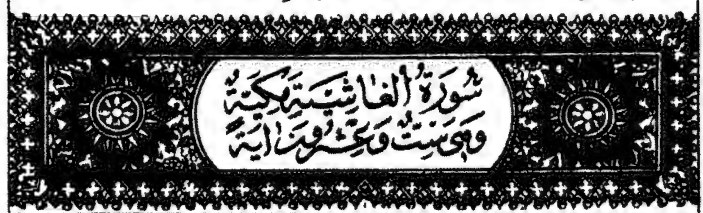 سُورَةُ الْغَاشِيَةِ مَكِيَّةٌ
وَهِيَ سِتٌّ وَعِشْرُونَ اٰيَةً